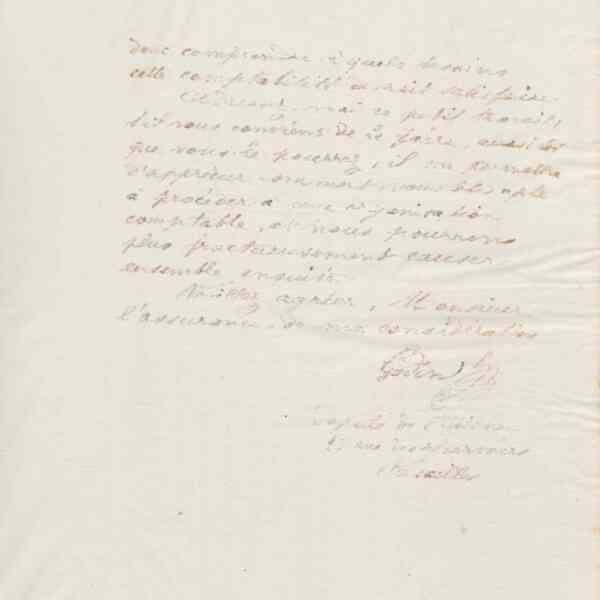 donc comprendre à quels besoins
cette comptabilité devait satisfaire.
Adressez-moi ce petit travail,
s'il vous convient de le faire, aussitôt
que vous le pourrez, il me permettra
d'apprécier comment vous êtes apte
à procéder à une organisation
comptable, et nous pourrons
plus fructueusement causer
ensemble ensuite.
Veuillez agréer, Monsieur,
l'assurance de ma considération
Godin
Député de l'Aisne
rue des Réservoirs
Versailles